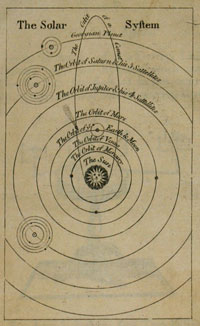 The Solar System
The Orbit of a Comet
Georgium Planet
The Orbit of Saturn & his 5 Satellites
The Orbit of Jupiter & his 4 Satellites
The Orbit of Mars
The Orbit of ye Earth & Moon
The Orbit of Venus
The Orbit of Mercury
The Sun